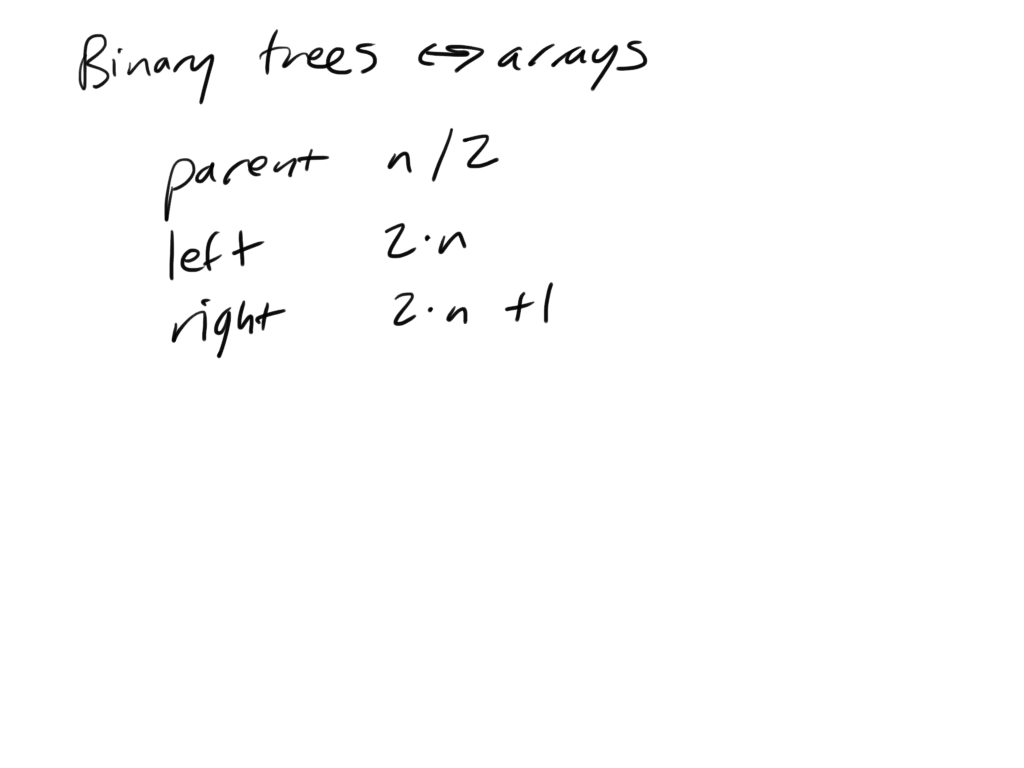 Binary trees ↔ arrays
parent n/2
left 2·n
right 2·n +1